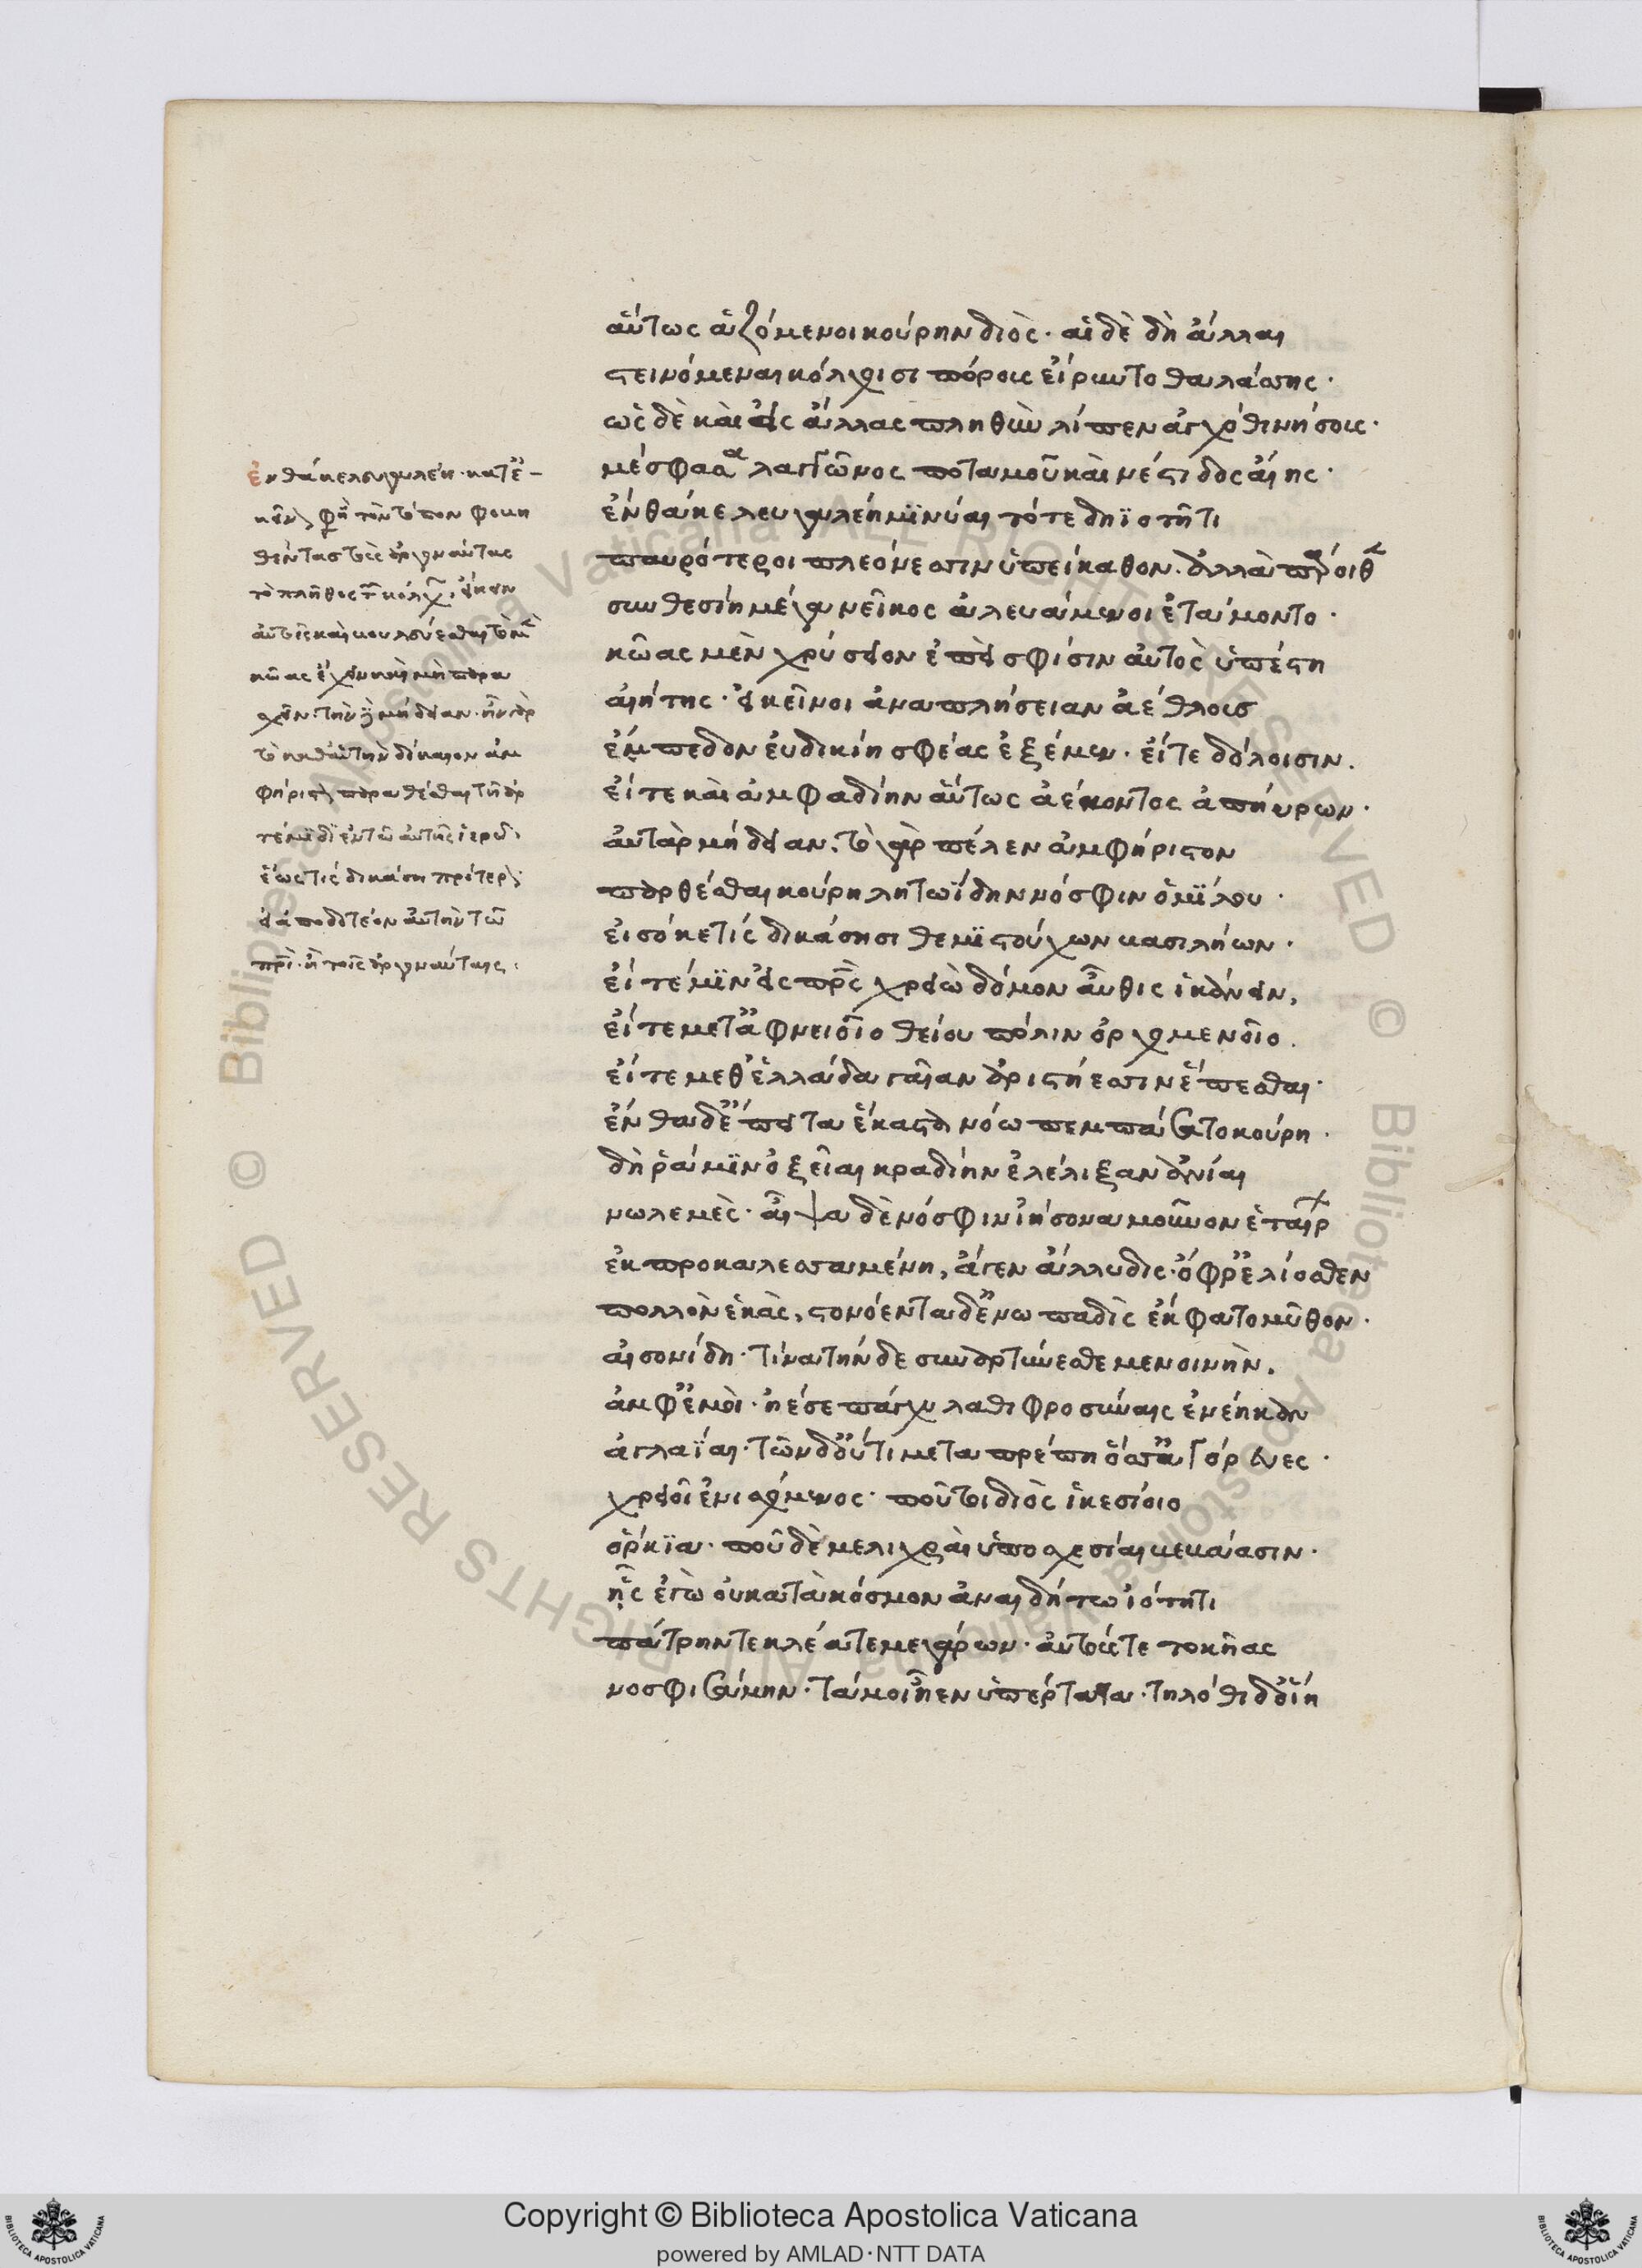 αὕτως ἁζόμενοι κούρην διὸς· αἱ δὲ δὴ ἄλλαι
στεινόμεναι κόλχοισι πόρους εἴρυντο θαλάσσης·
ὡς δὲ καὶ εἰς ἄλλας πληθὺν λίπεν ἀγχόθι νήσους·
μέσφα σαλαγγῶνος ποταμοῦ καὶ νέστιδος αἴης·
ἔνθα κε λευγαλέη μινύαι τότε δηϊοτῆτι
παυρότεροι πλεόνεσσιν ὑπείκαθον. ἀλλὰ πάροιθε
συνθεσίη μέγα νεῖκος ἀλευάμενοι ἐτάμοντο·
κῶας μὲν χρύσειον ἐπεί σφισιν αὐτὸς ὑπέστη
αἰήτης· εἰ κεῖνοι ἀναπλήσειαν ἀέθλους
ἔμπεδον εὐδικίη σφέας ἐξέμεν. εἴτε δόλοισιν.
εἴτε καὶ ἀμφαδίην αὕτως ἀέκοντος ἀπηύρων·
αὐτὰρ μήδειαν. τὸ γὰρ πέλεν ἀμφήριστον
παρθέσθαι κούρη λητωΐδη νόσφιν ὁμίλου·
εἰσόκε τὶς δικάσησι θεμιστούχων βασιλήων·
εἴτέ μιν εἰς πατρὸς χρειὼ δόμον αὖθις ἱκάνειν,
εἴτε μετ' ἀφνειοῖο θείου πόλιν ὀρχομενοῖο.
εἴτε μεθ' ἑλλάδα γαῖαν ἀριστήεσσιν ἕπεσθαι·
ἔνθα δ' ἐπεὶ τὰ ἕκαστα νόω πεμπάσσατο κούρη·
δή ῥά μιν ὀξεῖαι κραδίην ἐλέλιξαν ἀνίαι
νωλεμὲς· αἶψα δὲ νόσφιν ἰήσονα μοῦνον ἑταίρων
ἐκπροκαλεσσαμένη, ἄγεν ἄλλυδις· ὄφρ' ἐλίασθεν
πολλὸν ἑκὰς, στονόεντα δ' ἐνωπαδὶς ἔκφατο μῦθον·
αἰσονίδη· τίνα τήνδε συναρτύνεσθε μενοινὴν.
ἀμφ' ἐμοὶ· ἠέ σε πάγχυ λαθιφροσύναις ἐνέηκαν
ἀγλαΐαι· τῶν δ' οὔτι μετατρέπη ὅσσ' ἀγόρευες·
χρειοῖ ἐνισχόμενος· ποῦ τοι διὸς ἱκεσίοιο
ὅρκια· ποῦ δὲ μελιχραὶ ὑποσχεσίαι βεβάασιν·
ἧς ἐγὼ οὐ κατὰ κόσμον ἀναιδήτω ἰότητι
πάτρην τε κλέα τε μεγάρων· αὐτούς τε τοκῆας
νοσφισάμην· τά μοι ἦεν ὑπέρτατα· τηλόθι δ' οἴη
ἔνθά κε λευγαλέη· κατ' ἐ-
κεῖνον φησὶ τὸν τόπον φοβη
θέντας τοὺς ἀργοναύτας
τὸ πλῆθος τῶν κόλχων εἴκειν
αὐτοῖς καὶ βουλεύεσθαι τὸ μὲν
κῶας ἔχειν καὶ μὴ παρα
σχεῖν. τὴν δὲ μήδειαν. ἦν γὰρ
τὸ καθ' αὑτὴν δίκαιον ἀμ
φήριστον παραθέσθαι τῇ ἀρ
τέμιδι ἐν τῷ αὐτῆς ἱερῶ·
ἕως τίς δικάση πρότερον
εἰ ἀποδοτέον αὐτὴν τῶ
πατρὶ· ἢ τοῖς ἀργοναύταις·
© Biblioteca Apostolica Vaticana ALL RIGHTS RESERVED
© Biblioteca Apostolica Vaticana ALL RIGHTS RESERVED
Copyright © Biblioteca Apostolica Vaticana
powered by AMLAD·NTT DATA
BIBLIOTECA APOSTOLICA VATICANA
BIBLIOTECA APOSTOLICA VATICANA